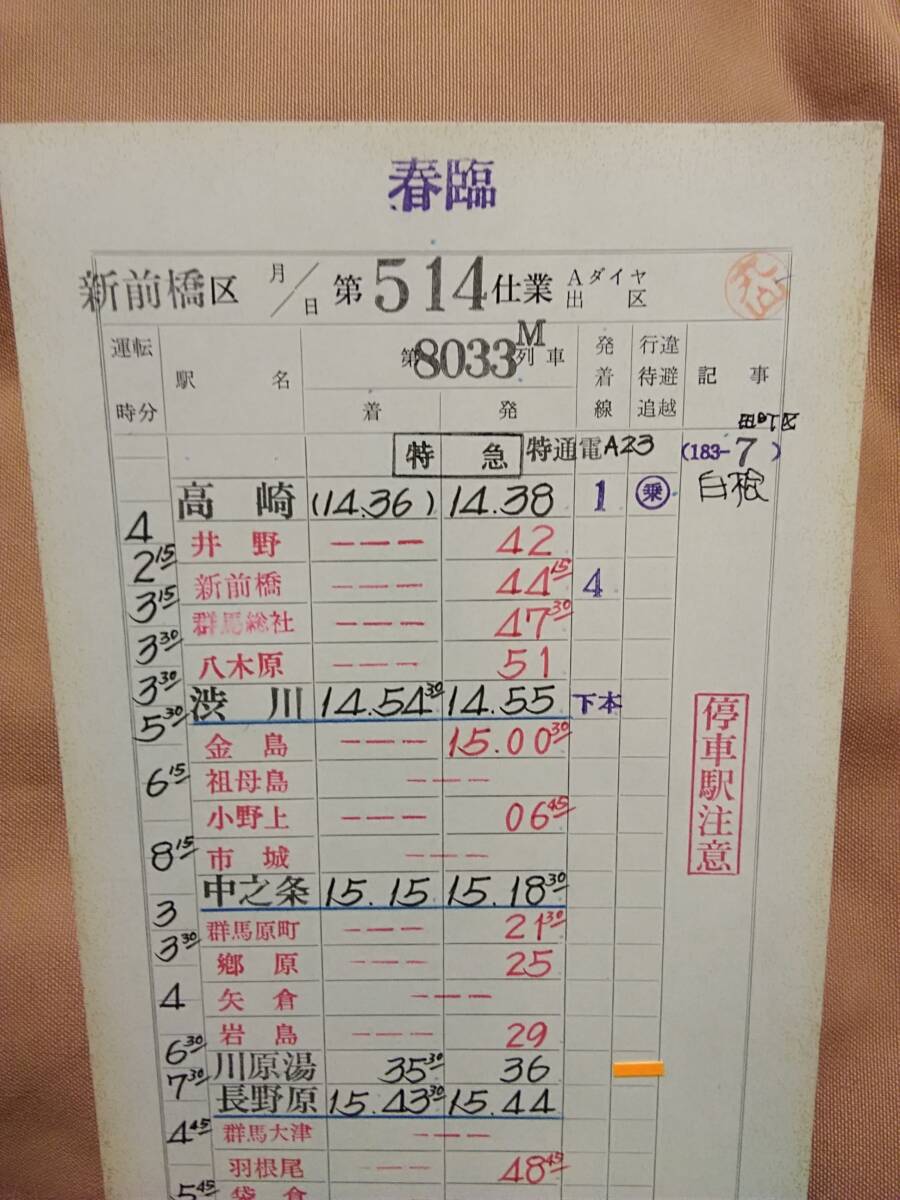 春臨
新前橋区 月/日 第514仕業 Aダイヤ 出区
運転時分 駅名 第8033M列車 着 発 発着線 行違待避追越 記事
特急 特通電A23 (183-7)
高崎 (14.36) 14.38 1 乗 白根
4
井野 --- 42
2 15
新前橋 --- 44 15 4
3 15
群馬総社 --- 47 30
3 30
八木原 --- 51
3 30
渋川 14.54 30 14.55 下本
5 30
金島 --- 15.00 30
祖母島 ---
6 15
小野上 --- 06 45
市城 ---
8 15
中之条 15.15 15.18 30
3
群馬原町 --- 21 30
3 30
郷原 --- 25
矢倉 ---
4
岩島 --- 29
6 30
川原湯 35 30 36
7 30
長野原 15.43 30 15.44
群馬大津 ---
4 45
羽根尾 --- 48 45
5 45
袋倉
停車駅注意